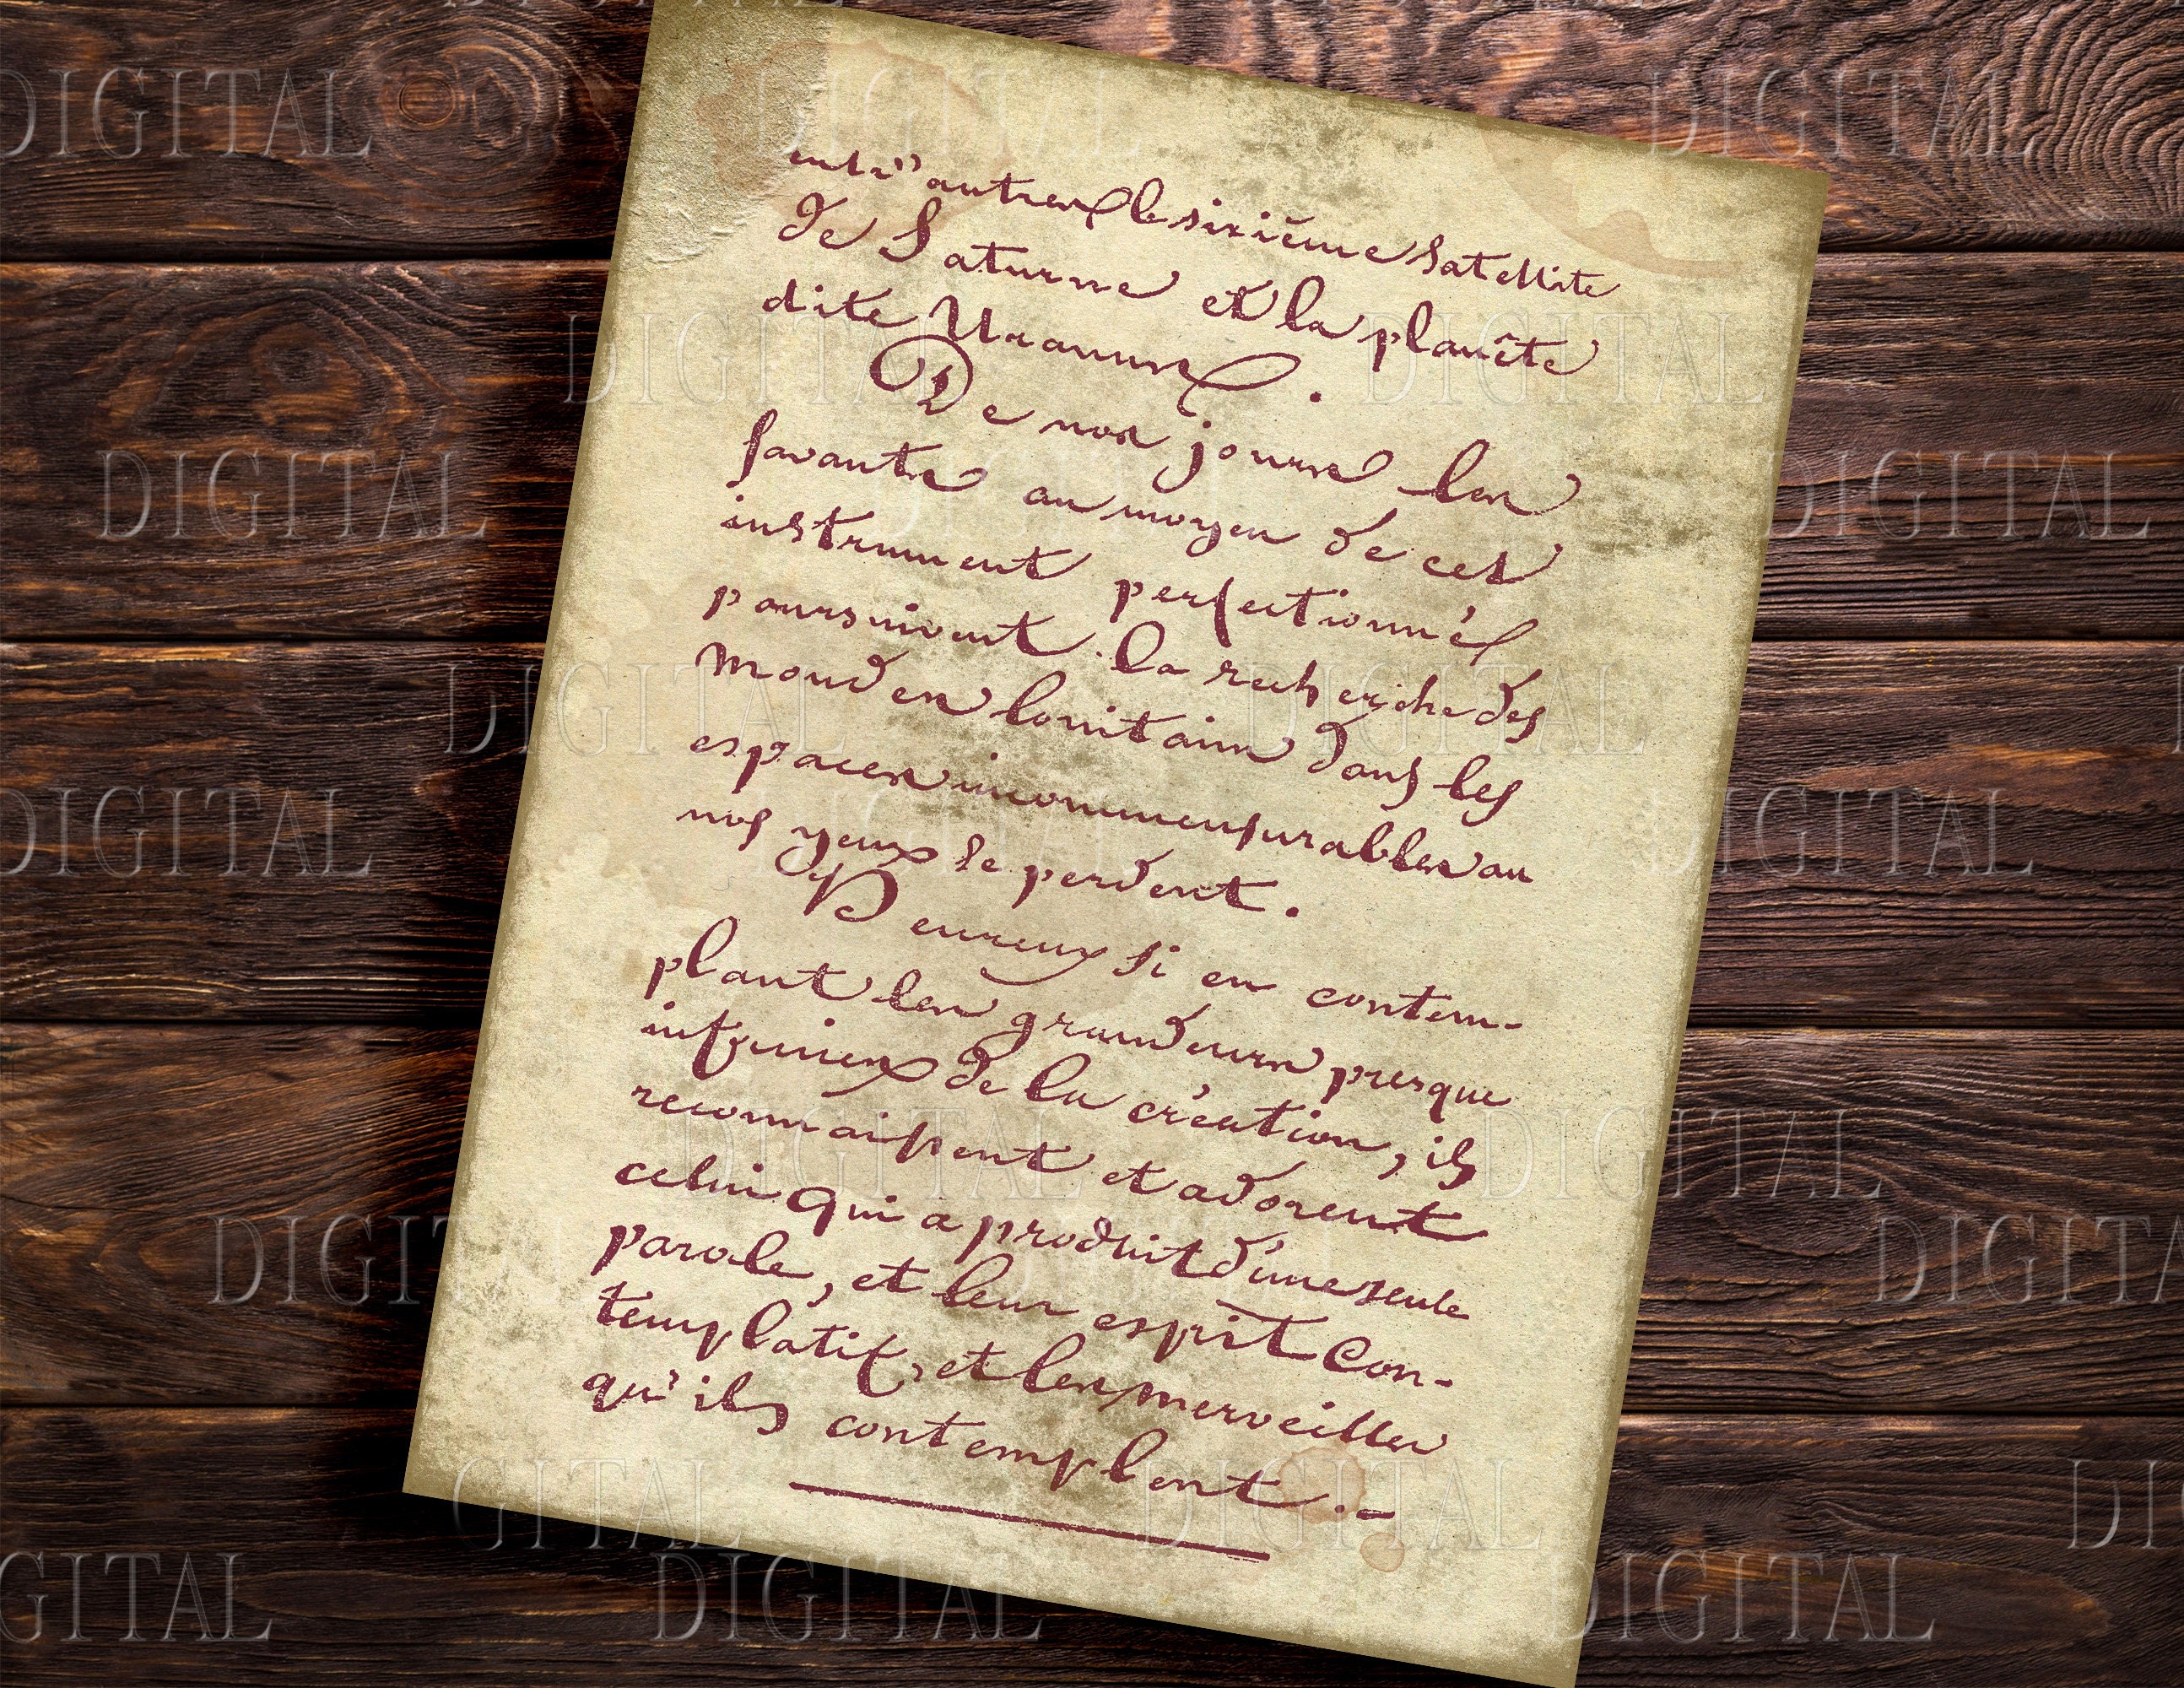 entr'autres le sixième Satellite
de Saturne et la planête
dite Uranus.
De nos jours les
savants au moyen de cet
instrument perfectionnés
poursuivent la recherche des
mondes lointains dans les
espaces incommensurables au
nos yeux se perdent.
Heureux si en contem-
plant les grandeurs presque
infinies de la création, ils
reconnaissent et adorent
celui qui a produit d'une seule
parole, et leur esprit Con-
templatif, et les merveilles
qu'ils contemplent.-
DIGITAL
DIGITAL
DIGITAL
DIGITAL
DIGITAL
DIGITAL
DIGITAL
DIGITAL
DIGITAL
DIGITAL
DIGITAL
DIGITAL
DIGITAL